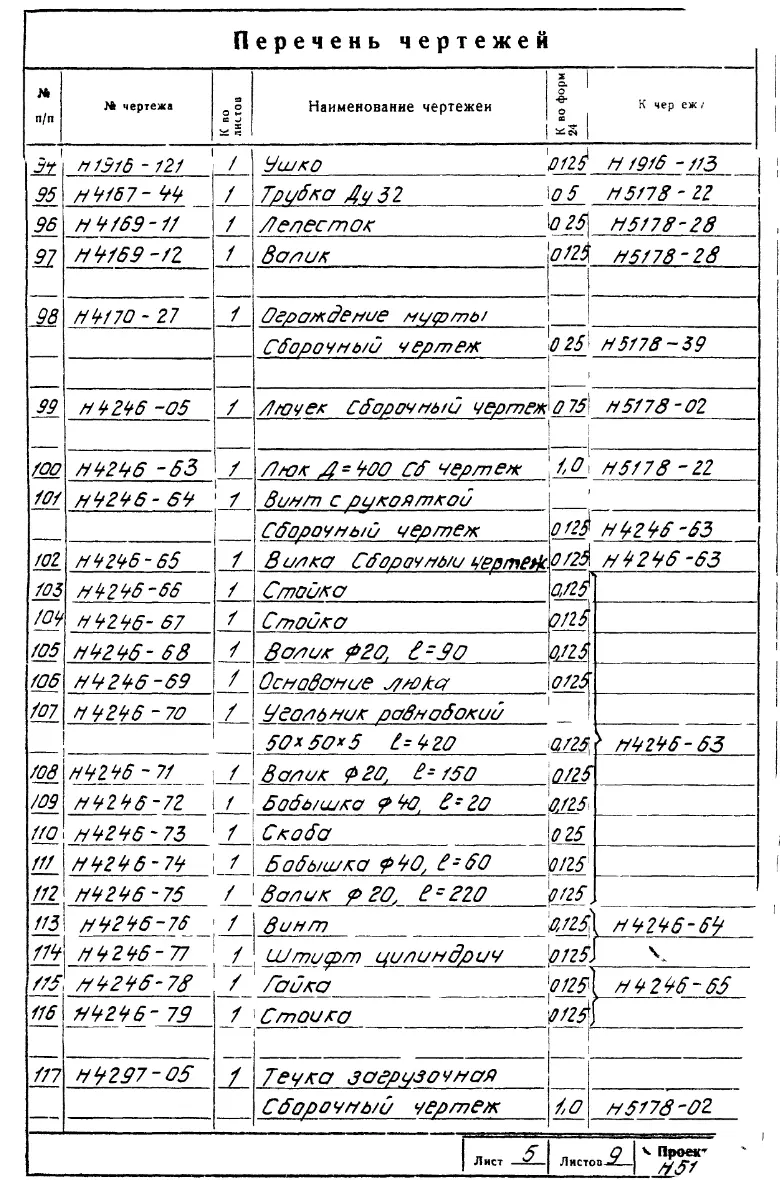 Перечень чертежей
№ п/п № чертежа К во листов Наименование чертежеи К во форм 24 К чер еж
94 Н1916-121 1 Ушко 0125 Н1916-113
95 Н4167-44 1 Трубка Ду 32 0 5 Н5178-22
96 Н4169-11 1 Лепесток 0 25 Н5178-28
97 Н4169-12 1 Валик 0125 Н5178-28
98 Н4170-27 1 Ограждение муфты
Сборочный чертеж 0 25 Н5178-39
99 Н4246-05 1 Лючек Сборочный чертеж 0 75 Н5178-02
100 Н4246-63 1 Люк Д=400 Сб чертеж 1,0 Н5178-22
101 Н4246-64 1 Винт с рукояткой
Сборочный чертеж 0125 Н4246-63
102 Н4246-65 1 Вилка Сборочныи чертеж 0125 Н4246-63
103 Н4246-66 1 Стойка 0,125
104 Н4246-67 1 Стойка 0125
105 Н4246-68 1 Валик ф20, ℓ=90 0,125
106 Н4246-69 1 Основание люка 0125
107 Н4246-70 1 Угольник равнобокий
50×50×5 ℓ=420 0,125 Н4246-63
108 Н4246-71 1 Валик ф20, ℓ=150 0125
109 Н4246-72 1 Бобышка ф40, ℓ=20 0,125
110 Н4246-73 1 Скоба 0 25
111 Н4246-74 1 Бобышка ф40, ℓ=60 0125
112 Н4246-75 1 Валик ф20, ℓ=220 0125
113 Н4246-76 1 Винт 0,125 Н4246-64
114 Н4246-77 1 Штифт цилиндрич 0125
115 Н4246-78 1 Гайка 0125 Н4246-65
116 Н4246-79 1 Стоика 0125
117 Н4297-05 1 Течка загрузочная
Сборочный чертеж 1,0 Н5178-02
Лист 5 Листов 9 Проек
Н51